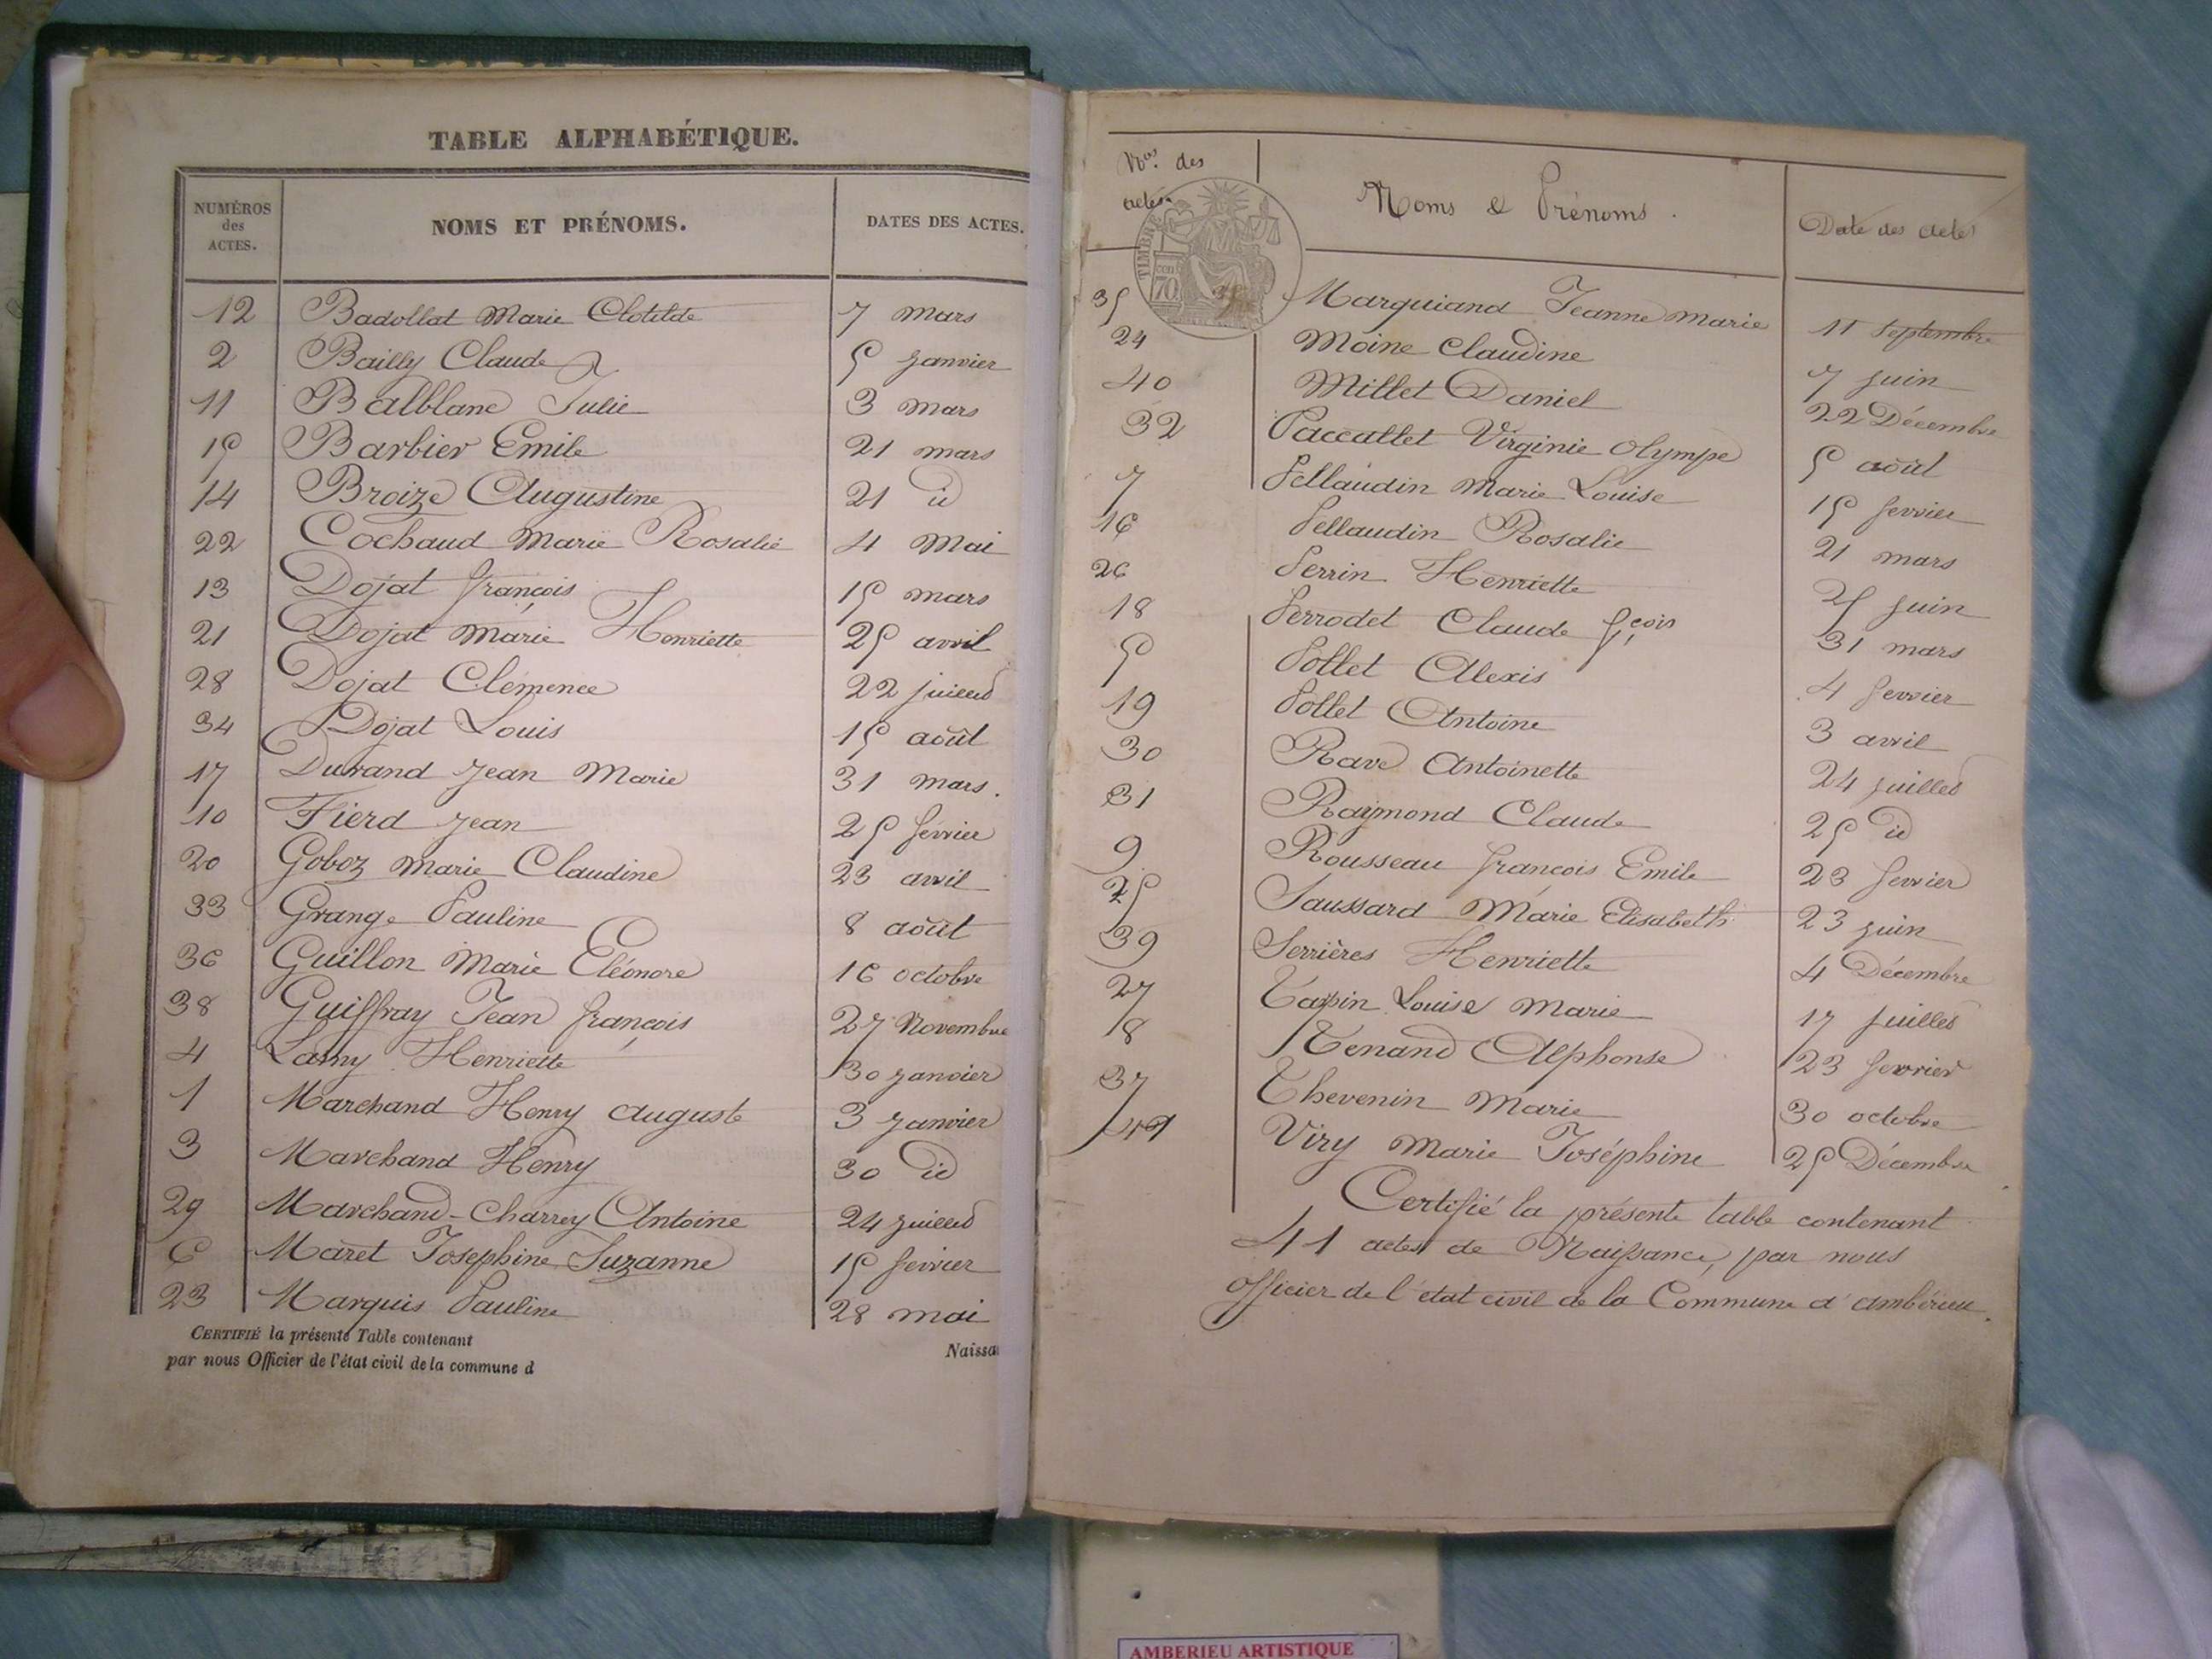 TABLE ALPHABÉTIQUE.
NUMÉROS des ACTES. NOMS ET PRÉNOMS. DATES DES ACTES.
12 Badollat Marie Clotilde 7 mars
2 Bailly Claude 5 Janvier
11 Balblanc Julie 3 mars
15 Barbier Emile 21 mars
14 Broize Augustine 21 id
22 Cochaud Marie Rosalie 4 Mai
13 Dojat françois 15 mars
21 Dojat Marie Henriette 25 avril
28 Dojat Clémence 22 juillet
34 Dojat Louis 15 août
17 Durand Jean Marie 31 mars.
10 Fierd Jean 25 février
20 Goboz Marie Claudine 23 avril
33 Grange Pauline 8 août
36 Guillon Marie Eléonore 16 octobre
38 Guiffray Jean françois 27 Novembre
4 Lamy Henriette 30 Janvier
1 Marchand Henry auguste 3 Janvier
3 Marchand Henry 30 id
29 Marchand-Charrey Antoine 24 juillet
6 Maret Josephine Suzanne 15 février
23 Marquis Pauline 28 mai
CERTIFIÉ la présente Table contenant Naissa
par nous Officier de l'état civil de la commune d
Nos. des actes. Noms & Prénoms. Date des actes
TIMBRE
cen 70
35 Marguiand Jeanne marie 11 Septembre
24 Moine Claudine 7 juin
40 Millet Daniel 22 Décembre
32 Paccallet Virginie Olympe 5 août
7 Pellaudin Marie Louise 15 fevrier
16 Pellaudin Rosalie 21 mars
26 Perrin Henriette 25 juin
18 Perrodet Claude fçois 31 mars
5 Pollet Alexis 4 fevrier
19 Pollet Antoine 3 avril
30 Rave Antoinette 24 juillet
31 Raymond Claude 25 id
9 Rousseau françois Emile 23 fevrier
25 Saussard Marie Elisabeth 23 juin
39 Serrières Henriette 4 Décembre
27 Tapin Louise Marie 17 juillet
8 Tenand Alphonse 23 fevrier
37 Thevenin Marie 30 octobre
41 Viry Marie Joséphine 25 Décembre
Certifié la présente table contenant
41 actes de Naissance, par nous
officier de l'état civil de la Commune d'ambérieu.
AMBERIEU ARTISTIQUE